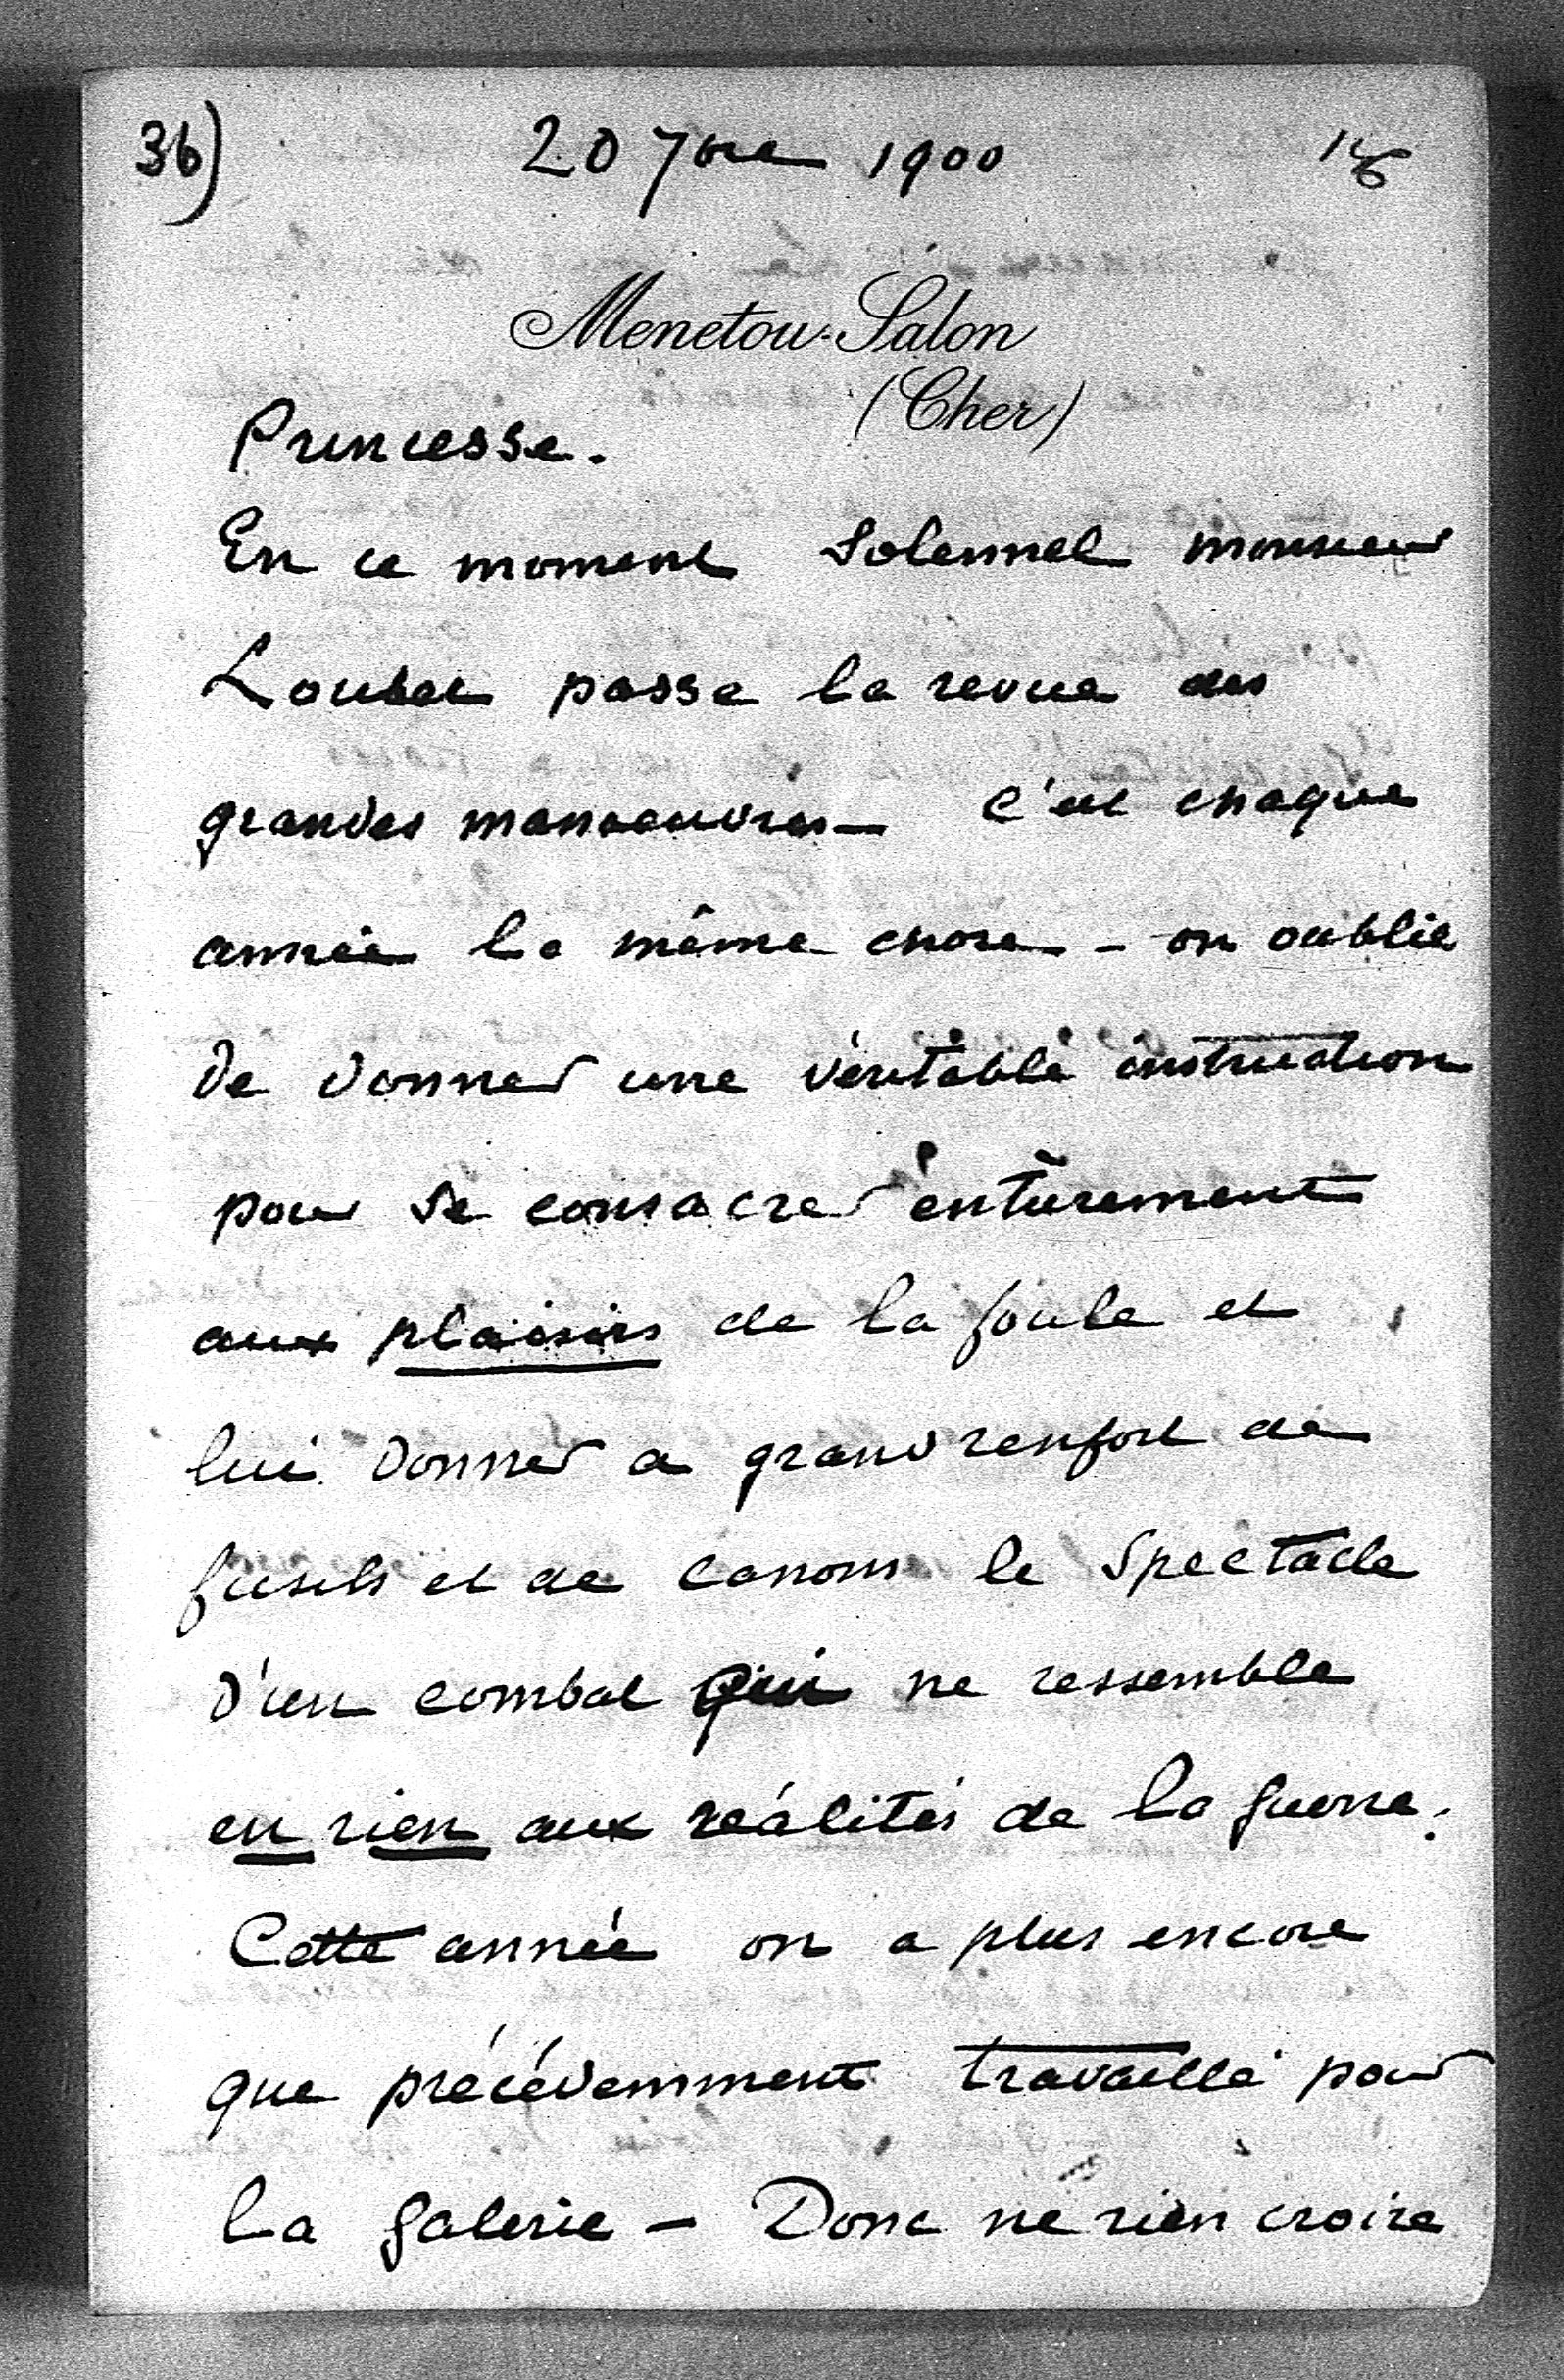 36) 20 7bre 1900
Menetou-Salon
(Cher)
Princesse.
En ce moment solennel monsieur
Loubet passe la revue des
grandes manoeuvres — c'est chaque
année la même chose — on oublie
de donner une véritable instruction
pour se consacrer entièrement
aux plaisirs de la foule et
lui donner a grand renfort de
fusils et de canons le spectacle
d'un combat qui ne ressemble
en rien aux réalités de la guerre.
Cette année on a plus encore
que précédemment travaillé pour
la galerie — Donc ne rien croire